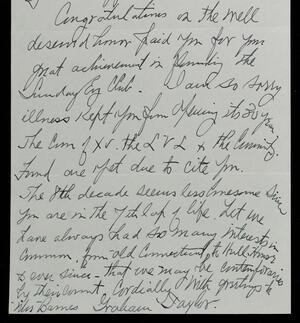 Congratulations on the well
deserved honor paid you for your
great achievement in founding the
Sunday Eve Club. I am so sorry
illness kept you from opening its 20 year
The Com of XV. the L V L & the Community
Fund are yet due to cite you.
The 8th decade seems less lonesome since
you are in the 7th lap of life. Let us
have always had so many interests in
common, from old Connecticut, to Hull House
& ever since - that we may be contemporaries
by their count. Cordially with greetings to
Mrs Barnes Graham Taylor.